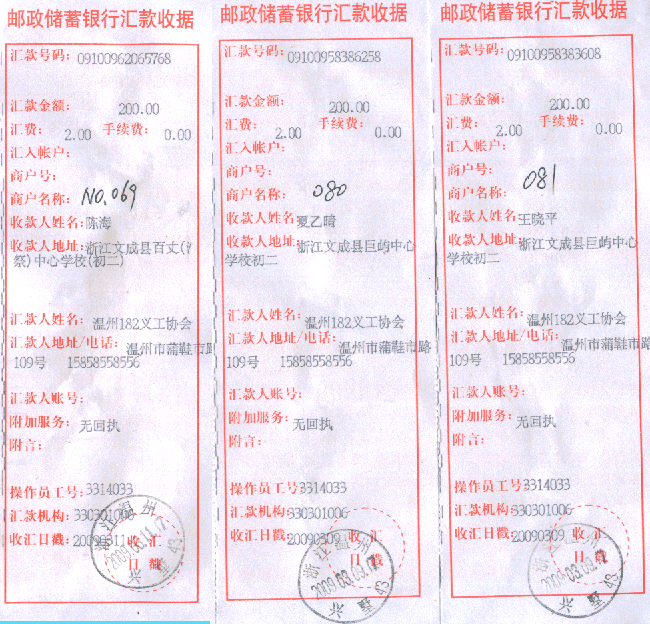 邮政储蓄银行汇款收据
汇款号码: 09100962065768
汇款金额: 200.00
汇费: 2.00 手续费: 0.00
汇入帐户:
商户号:
商户名称: NO.069
收款人姓名: 陈海
收款人地址: 浙江文成县百丈(
祭)中心学校(初二)
汇款人姓名: 温州182义工协会
汇款人地址/电话: 温州市蒲鞋市路
109号 15858558556
汇款人账号:
附加服务: 无回执
附言:
操作员工号: 3314033
汇款机构: 330301006
收汇日戳: 20090311
收汇
日戳
浙江温州
2009.03.11.17
兴 43
邮政储蓄银行汇款收据
汇款号码: 09100958386258
汇款金额: 200.00
汇费: 2.00 手续费: 0.00
汇入帐户:
商户号:
商户名称: 080
收款人姓名: 夏乙晴
收款人地址: 浙江文成县巨屿中心
学校初二
汇款人姓名: 温州182义工协会
汇款人地址/电话: 温州市蒲鞋市路
109号 15858558556
汇款人账号:
附加服务: 无回执
附言:
操作员工号: 3314033
汇款机构: 330301006
收汇日戳: 20090309
收汇
日戳
浙江温州
2009.03.09.17
兴 43
邮政储蓄银行汇款收据
汇款号码: 09100958383608
汇款金额: 200.00
汇费: 2.00 手续费: 0.00
汇入帐户:
商户号:
商户名称: 081
收款人姓名: 王晓平
收款人地址: 浙江文成县巨屿中心
学校初二
汇款人姓名: 温州182义工协会
汇款人地址/电话: 温州市蒲鞋市路
109号 15858558556
汇款人账号:
附加服务: 无回执
附言:
操作员工号: 3314033
汇款机构: 330301006
收汇日戳: 20090309
收汇
日戳
浙江温州
03.09.17
兴 43